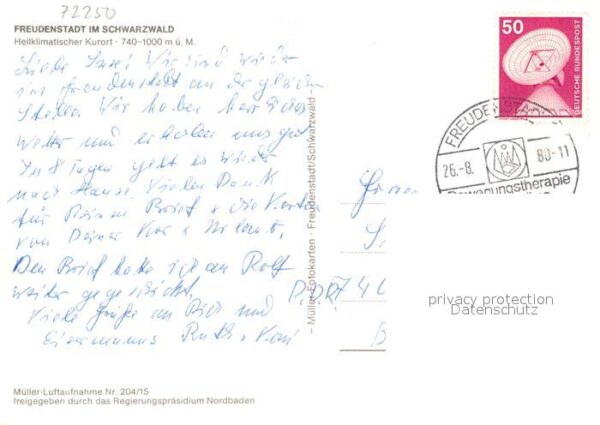 72250
FREUDENSTADT IM SCHWARZWALD
Heilklimatischer Kurort · 740-1000 m ü. M.
Liebe Susi! Wir sind wieder
in Freudenstadt an der gleichen
Stelle. Wir haben herrliches
Wetter und erholen uns gut.
In 8 Tagen geht es wieder
nach Hause. Vielen Dank
für Deinen Brief & die Karten
von Deiner Kur & Urlaub.
Den Brief habe ich an Rolf
weiter geschickt.
Viele Grüße an Dich und
Ruth &
50
DEUTSCHE BUNDESPOST
FREUDENSTADT
26.-8. 80-11
Bewegungstherapie
DDR 74
– Müller-Fotokarten · Freudenstadt/Schwarzwald –
privacy protection
Datenschutz
Müller-Luftaufnahme Nr. 204/15
freigegeben durch das Regierungspräsidium Nordbaden